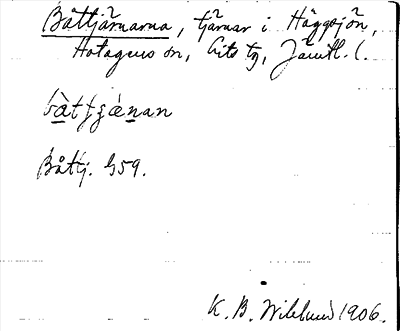 Båttjärnarna, tjärnar i Häggsjön,
Hotagens sn, Lits tg, Jämtl. l.
bàttjæ̀nan
Båttj. G59.
K. B. Wiklund 1906.